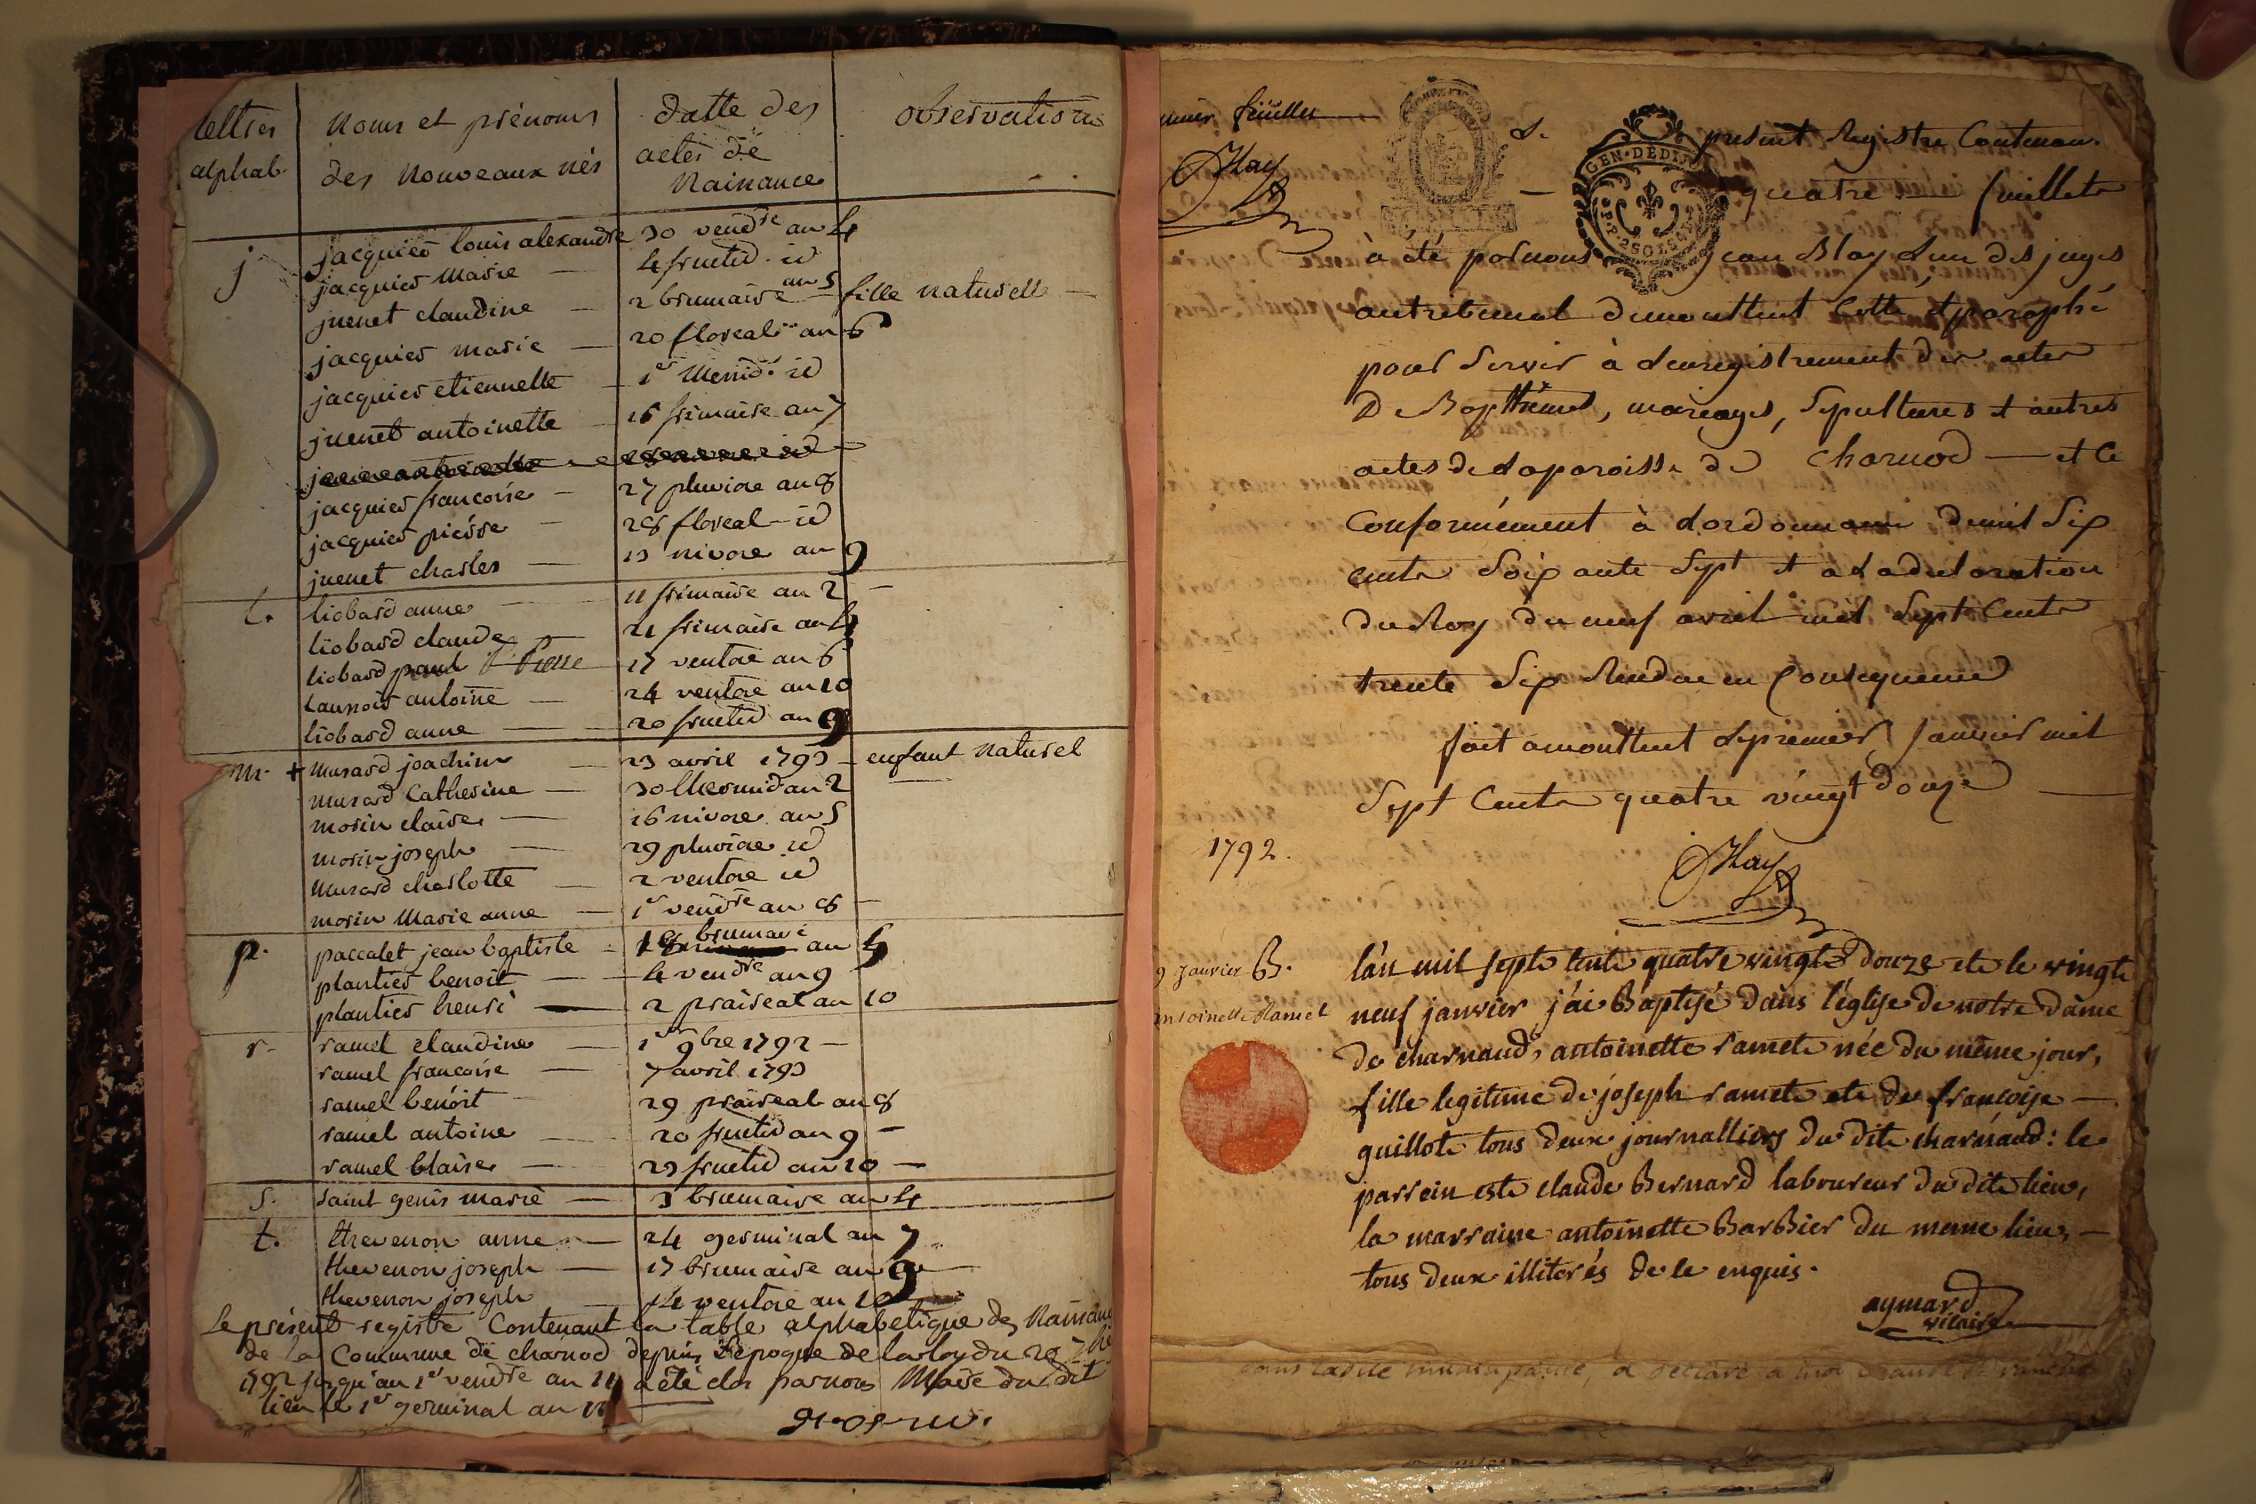 lettres alphab. | Noms et prénoms des Nouveaux nés | datte des actes de Naisance | observations
j | jacquier louis alexandre | 30 vendre an 4
jacquier Marie — | 4 fructid. id
juenet claudine — | 2 brumaire an 5 — | fille naturelle —
jacquier marie — | 20 floreal an 6
jacquier etiennette — | 1er Messid. id
juenet antoinette — | 16 frimaire an 7
jacquier francoise — | 27 pluviose an 8
jacquier pierre — | 28 floreal — id
juenet charles — | 13 nivose an 9
l. | liobard anne — | 11 frimaire an 2 —
liobard claude | 21 frimaire an 4
liobard paul Pierre | 17 ventose an 6
Launois antoine — | 24 ventose an 10
liobard anne — | 20 fructid an 9
m. + | Murard joachim — | 23 avril 1793 — | enfant Naturel
Murard Catherine — | 30 thermid an 2
morin claire — | 16 nivose an 5
morin joseph — | 29 pluviose id
Murard charlotte — | 2 ventose id
morin Marie anne — | 1er vendre an 8 —
p. | paccalet jean baptiste — | 18 brumaire an 5
plantier benoit — | 4 vendre an 9
plantier henri — | 2 praireal an 10
r. | ramel claudine — | 1er 9bre 1792 —
ramel francoise — | 7 avril 1793
ramel benoit | 29 praireal an 8
ramel antoine — | 20 fructid an 9 —
ramel blaise — | 23 fructid an 10 —
s. | saint genis marie — | 3 brumaire an 4
t. | thevenon anne — | 24 germinal an 7
thevenon joseph — | 17 brumaire an 9
thevenon joseph | 14 ventose an 10
Le présent registre Contenant la table alphabetique des Naisance
de la Commune de charnod depuis l'epoque de la loy du 20 7bre
1792 jusqu'au 1er vendre an 11 a été clos par nous Maire du dit
lieu le 1er germinal an
feuillet
GEN. DEDI
present Registre Contenan
quatre — feuillets
à été par nous jean Blay L'un des juges
au tribunal de montluel Cotté et paraphé
pour servir à L'enregistrement des actes
De Baptêmes, mariages, Sépultures et autres
actes de La paroisse de Charnod — et ce
Conformément à L'ordonnance de mil Six
Cents Soixante Sept et à La déclaration
du Roy du neuf avril mil Sept Cents
trente Six Rendue en Conséquence
fait a montluel Le premier Janvier mil
Sept Cents quatre vingt douze —
1792.
9 Janvier B.
antoinette Ramel
l'an mil sept cent quatre vingt douze et le vingt
neuf janvier j'ai Baptisé dans l'église de notre dame
de charnaud, antoinette ramet née du même jour,
fille legitime de joseph ramet et de francoise —
guillot tous deux journalliers du dit charnaud: le
parrein est claude Bernard laboureur du dit lieu,
la marraine antoinette BarBier du meme lieu, —
tous deux illiterés de le enquis.
aymard
vicaire
a déclaré a moi